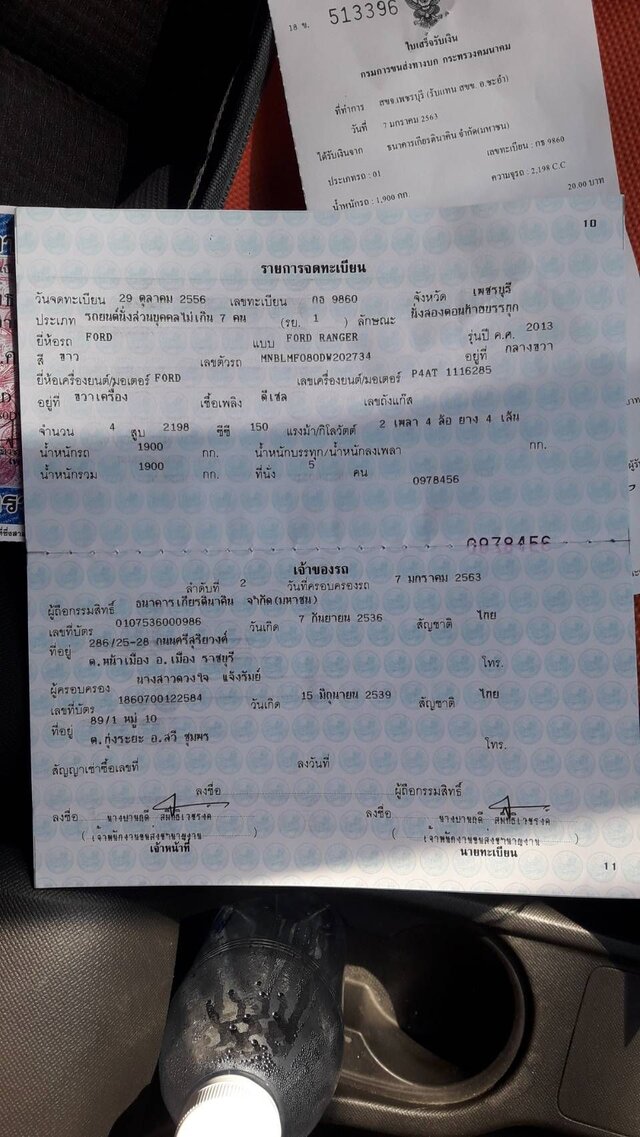 18 ข. 513396
ใบเสร็จรับเงิน
กรมการขนส่งทางบก กระทรวงคมนาคม
ที่ทำการ สขจ.เพชรบุรี (รับแทน สขข. อ.ชะอำ)
วันที่ 7 มกราคม 2563
ได้รับเงินจาก ธนาคารเกียรตินาคิน จำกัด(มหาชน)
ประเภทรถ : 01 เลขทะเบียน : กธ 9860
น้ำหนักรถ : 1,900 กก. ความจุรถ : 2,198 C.C
20.00 บาท
10
รายการจดทะเบียน
วันจดทะเบียน 29 ตุลาคม 2556 เลขทะเบียน กธ 9860 จังหวัด เพชรบุรี
ประเภท รถยนต์นั่งส่วนบุคคลไม่เกิน 7 คน (รย. 1 ) ลักษณะ นั่งสองตอนท้ายบรรทุก
ยี่ห้อรถ FORD แบบ FORD RANGER รุ่นปี ค.ศ. 2013
สี ขาว เลขตัวรถ MNBLMF080DW202734 อยู่ที่ กลางขวา
ยี่ห้อเครื่องยนต์/มอเตอร์ FORD เลขเครื่องยนต์/มอเตอร์ P4AT 1116285
อยู่ที่ ขวาเครื่อง เชื้อเพลิง ดีเซล เลขถังแก๊ส
จำนวน 4 สูบ 2198 ซีซี 150 แรงม้า/กิโลวัตต์ 2 เพลา 4 ล้อ ยาง 4 เส้น
น้ำหนักรถ 1900 กก. น้ำหนักบรรทุก/น้ำหนักลงเพลา กก.
น้ำหนักรวม 1900 กก. ที่นั่ง 5 คน
0978456
0978456
เจ้าของรถ
ลำดับที่ 2 วันที่ครอบครองรถ 7 มกราคม 2563
ผู้ถือกรรมสิทธิ์ ธนาคารเกียรตินาคิน จำกัด(มหาชน)
เลขที่บัตร 0107536000986 วันเกิด 7 กันยายน 2536 สัญชาติ ไทย
ที่อยู่ 286/25-28 ถนนศรีสุริยวงค์
ต.หน้าเมือง อ.เมือง ราชบุรี โทร.
ผู้ครอบครอง นางสาวดวงใจ แจ้งรัมย์
เลขที่บัตร 1860700122584 วันเกิด 15 มิถุนายน 2539 สัญชาติ ไทย
ที่อยู่ 89/1 หมู่ 10
ต.ทุ่งระยะ อ.สวี ชุมพร โทร.
สัญญาเช่าซื้อเลขที่ ลงวันที่
ลงชื่อ ผู้ถือกรรมสิทธิ์
ลงชื่อ ลงชื่อ
(เจ้าพนักงานขนส่งชำนาญงาน) (เจ้าพนักงานขนส่งชำนาญงาน)
เจ้าหน้าที่ นายทะเบียน
11